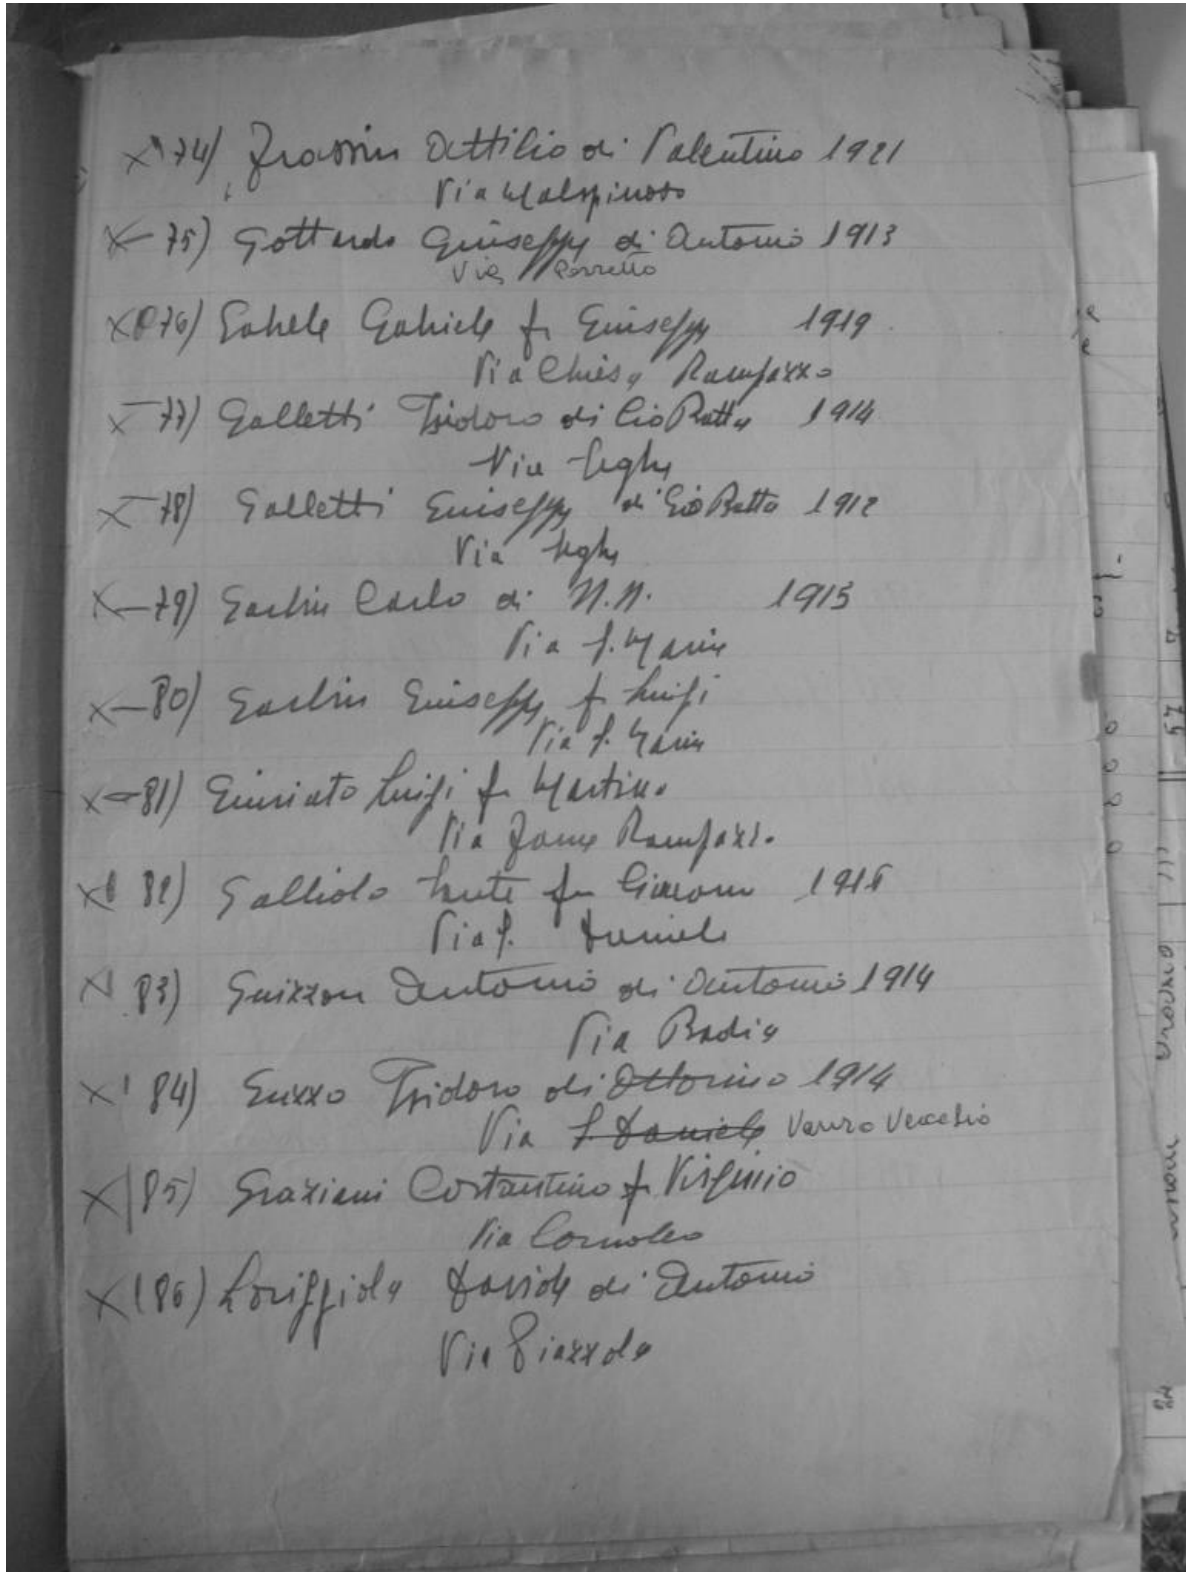 X 74) Frassin Attilio di Valentino 1921
Via Malspinoso
X 75) Gottardo Giuseppe di Antonio 1913
Via
X 76) Gabriele fu Giuseppe 1919
Via Chiesa Rampazzo
X 77) Galletti Isidoro di Gio Batta 1914
Via Seghe
X 78) Galletti Giuseppe di Gio Batta 1912
Via Seghe
X 79) Garbin Carlo di N.N. 1915
Via S. Maria
X 80) Garbin Giuseppe fu Luigi
Via S. Maria
X 81) Luigi fu Martino
Via Rampazzo
X 82) Sante fu Giacomo
Via S. Daniele
X 83) Guizzon Antonio di Antonio 1914
Via Badia
X 84) Isidoro di Ottorino 1914
Via S. Daniele Vanzo Vecchio
X 85) Graziani Costantino fu Virginio
Via Cornoleo
X 86) Loriggiola Davide di Antonio
Via Piazzola